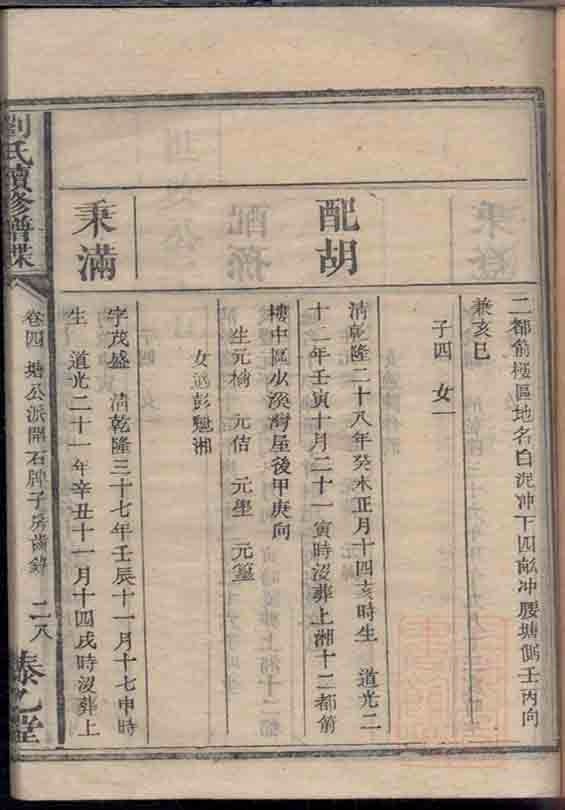 二都前樓區地名白泥冲下四畝冲腰塘側壬丙向
兼亥巳
子四 女一
配胡
清乾隆二十八年癸未正月十四亥時生 道光二
十二年壬寅十月二十一寅時沒葬上湘十二都前
樓中區沙溪灣屋後甲庚向
生元檎 元佶 元壆 元篁
女適彭魁湘
秉滿
字茂盛 清乾隆三十七年壬辰十一月十七申時
生 道光二十一年辛丑十一月十四戌時沒葬上
劉氏續修譜牒
卷四 塘公派開石牌子房齒錄 二八